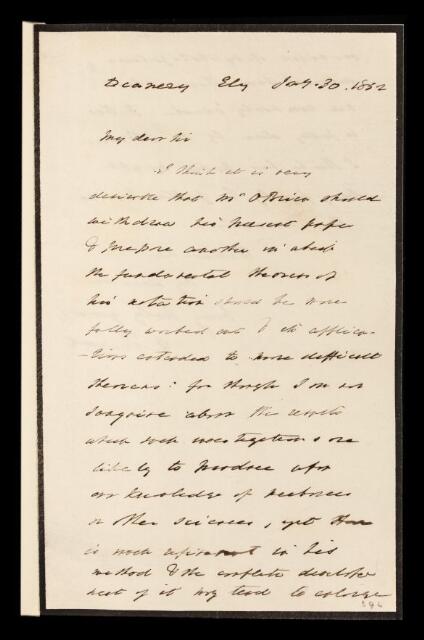 Deanery Ely Jany. 30. 1852
My dear Sir
I think it is very
desirable that Mr O'Brien should
withdraw his present paper
& prepare another in which
the fundamental theorems of
his notation should be more
fully worked out & its applica-
-tions extended to more difficult
theorems: for though I am not
sanguine about the results
which such investigations are
likely to produce upon
our knowledge of mechanics
or other sciences, yet there
is much in his
method & the complete develope
ment of it may tend to enlarge